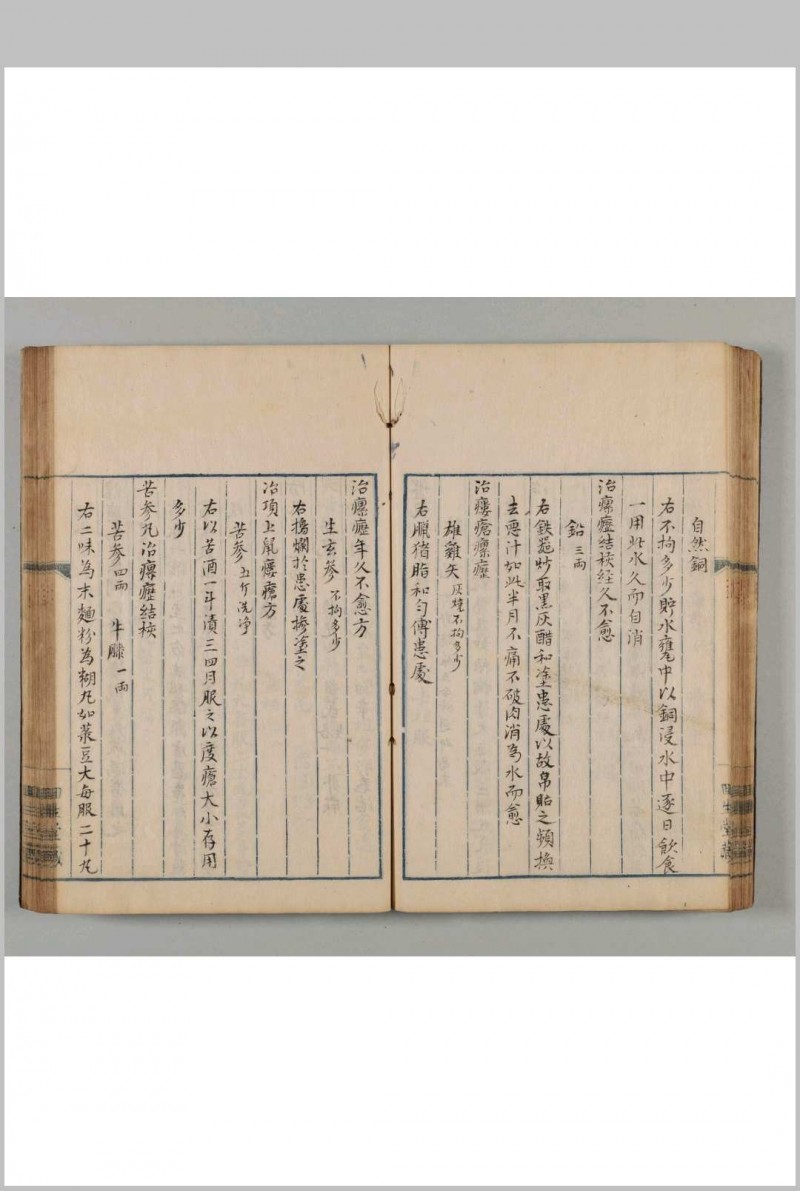 自然銅
右不拘多少貯水甕中以銅浸水中逐日飲食
一用此水久而自消
治瘰癧結核経久不愈
鉛 三両
右鉄器炒取黒灰醋和塗患處以故帛貼之頻換
去悪汁如此半月不痛不破肉消為水而愈
治瘻瘡瘰癧
雄雞矢 灰燒不拘多少
右臘猪脂和匀傅患處
治瘰癧年久不愈方
生玄參 不拘多少
右搗爛於患處摻塗之
治項上鼠瘻瘡方
苦參 五斤洗净
右以苦酒一斗漬三四日服之以度瘡大小存用
多少
苦參丸治瘰癧結核
苦參四両 牛膝一両
右二味為末麵粉為糊丸如菉豆大每服二十丸